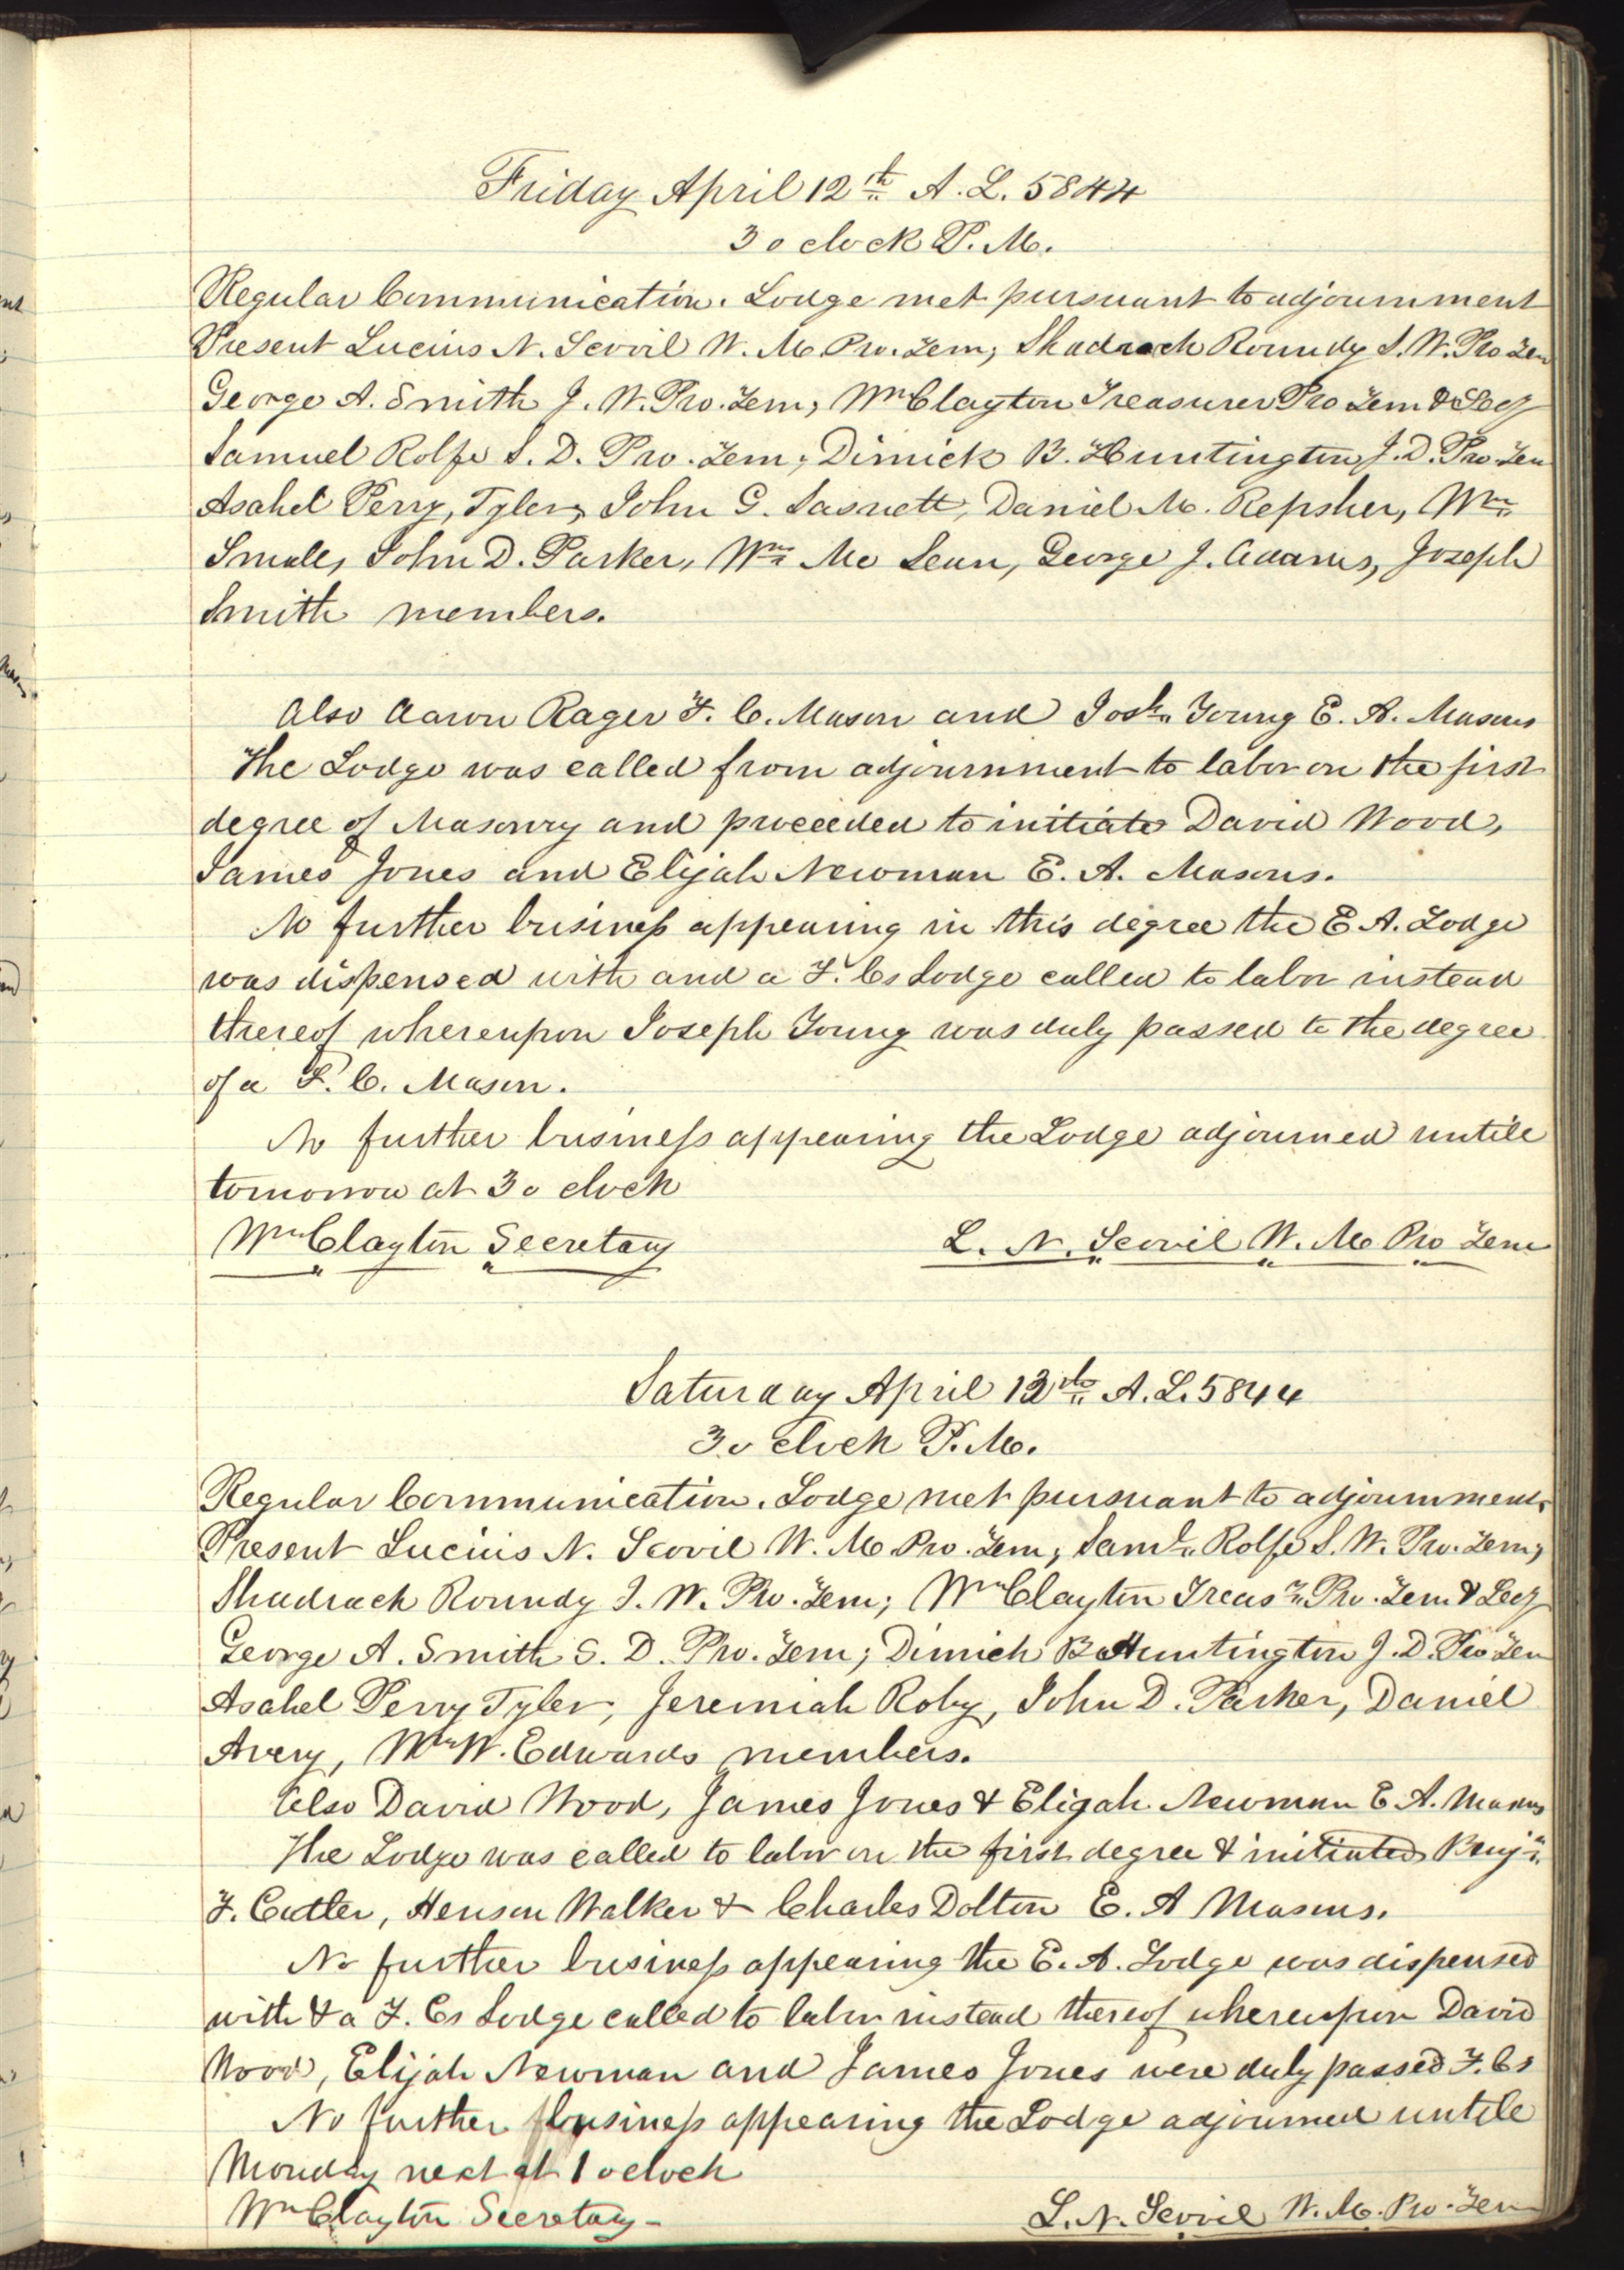 Friday April 12th A. L. 5844
3 o clock P. M.
Regular Communication. Lodge met pursuant to adjournment
Present Lucius N. Scovil W. M. Pro. Tem; Shadrach Roundy S. W. Pro Tem
George A. Smith J. W. Pro. Tem; Wm Clayton Treasurer Pro Tem & Secy
Samuel Rolfe S. D. Pro. Tem; Dimick B. Huntington J. D. Pro. Tem
Asahel Perry, Tyler, John G. Sasnett, Daniel M. Repsher, Wm
Small, John D. Parker, Wm Mc Lean, George J. Adams, Joseph
Smith members.
Also Aaron Rager F. C. Mason and Josh. Young E. A. Masons
The Lodge was called from adjournment to labor on the first
degree of Masonry and proceeded to initiate David Wood,
James Jones and Elijah Newman E. A. Masons.
No further business appearing in this degree the E A. Lodge
was dispensed with and a F. Cs Lodge called to labor instead
thereof whereupon Joseph Young was duly passed to the degree
of a F. C. Mason.
No further business appearing the Lodge adjourned untill
tomorrow at 3 o clock
Wm Clayton Secretary L. N. Scovil W. M. Pro Tem
Saturday April 13th A. L. 5844
3 o clock P. M.
Regular Communication. Lodge met pursuant to adjournment
Present Lucius N. Scovil W. M. Pro. Tem; Saml. Rolfe S. W. Pro. Tem;
Shadrach Roundy J. W. Pro. Tem; Wm Clayton Treasr. Pro. Tem & Secy
George A. Smith S. D. Pro. Tem; Dimick B Huntington J. D. Pro Tem
Asahel Perry Tyler, Jeremiah Roby, John D. Parker, Daniel
Avery, Wm W. Edwards members.
Also David Wood, James Jones & Eligah Newman E. A. Masons
The Lodge was called to labor on the first degree & initiated Benjn.
F. Cutler, Henson Walker & Charles Dolton E. A Masons.
No further business appearing the E. A. Lodge was dispensed
with & a F. Cs Lodge called to labor instead thereof whereupon David
Wood, Elijah Newman and James Jones were duly passed F. Cs
No further business appearing the Lodge adjourned untill
Monday next at 1 o clock
Wm Clayton Secretary- L. N. Scovil W. M. Pro. Tem